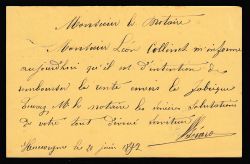 Monsieur le Notaire
Monsieur Léon Collinet m'informe
aujourdhui qu'il est d'intention de
rembourser la rente envers la fabrique
M. le notaire les sincères salutations
de votre tout dévoué serviteur
le 21 juin 1892